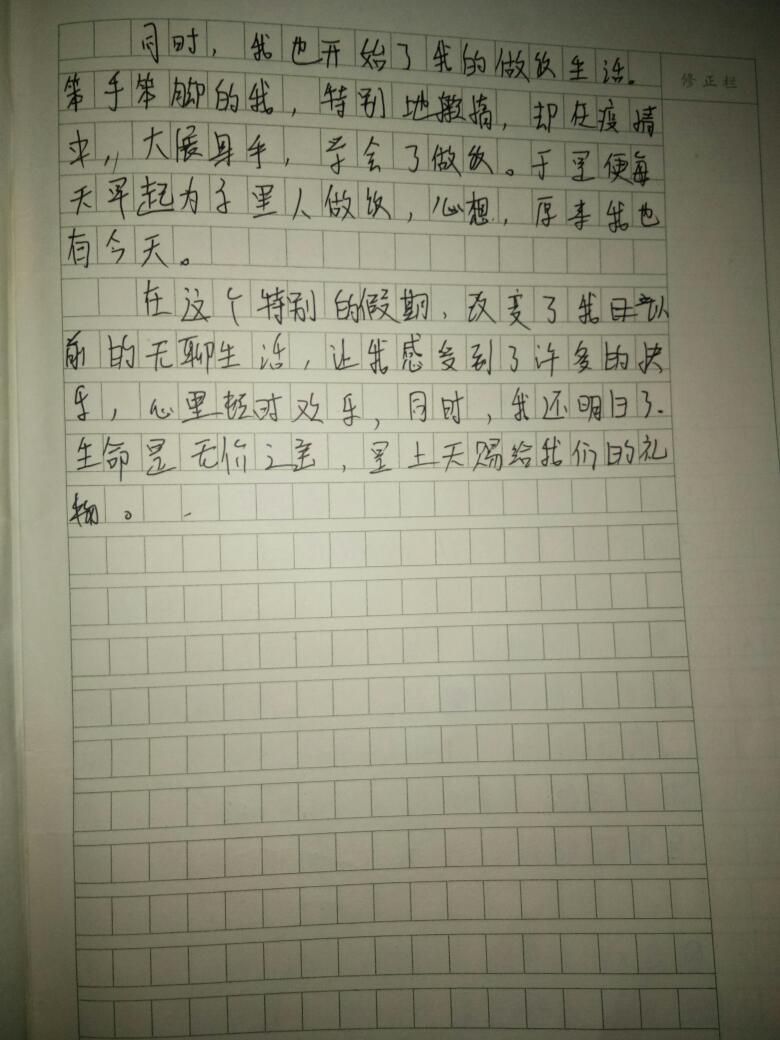 修正栏
同时，我也开始了我的做饭生活.
笨手笨脚的我，特别地撒捣，却在疫情
中,,大展身手，学会了做饭。于是便每
天早起为了里人做饭，心想，厚来我也
有今天。
在这个特别的假期，改变了我以
前的无聊生活，让我感受到了许多的快
乐，心里顿时欢乐，同时，我还明白了.
生命是无价之宝，是上天赐给我们的礼
物。